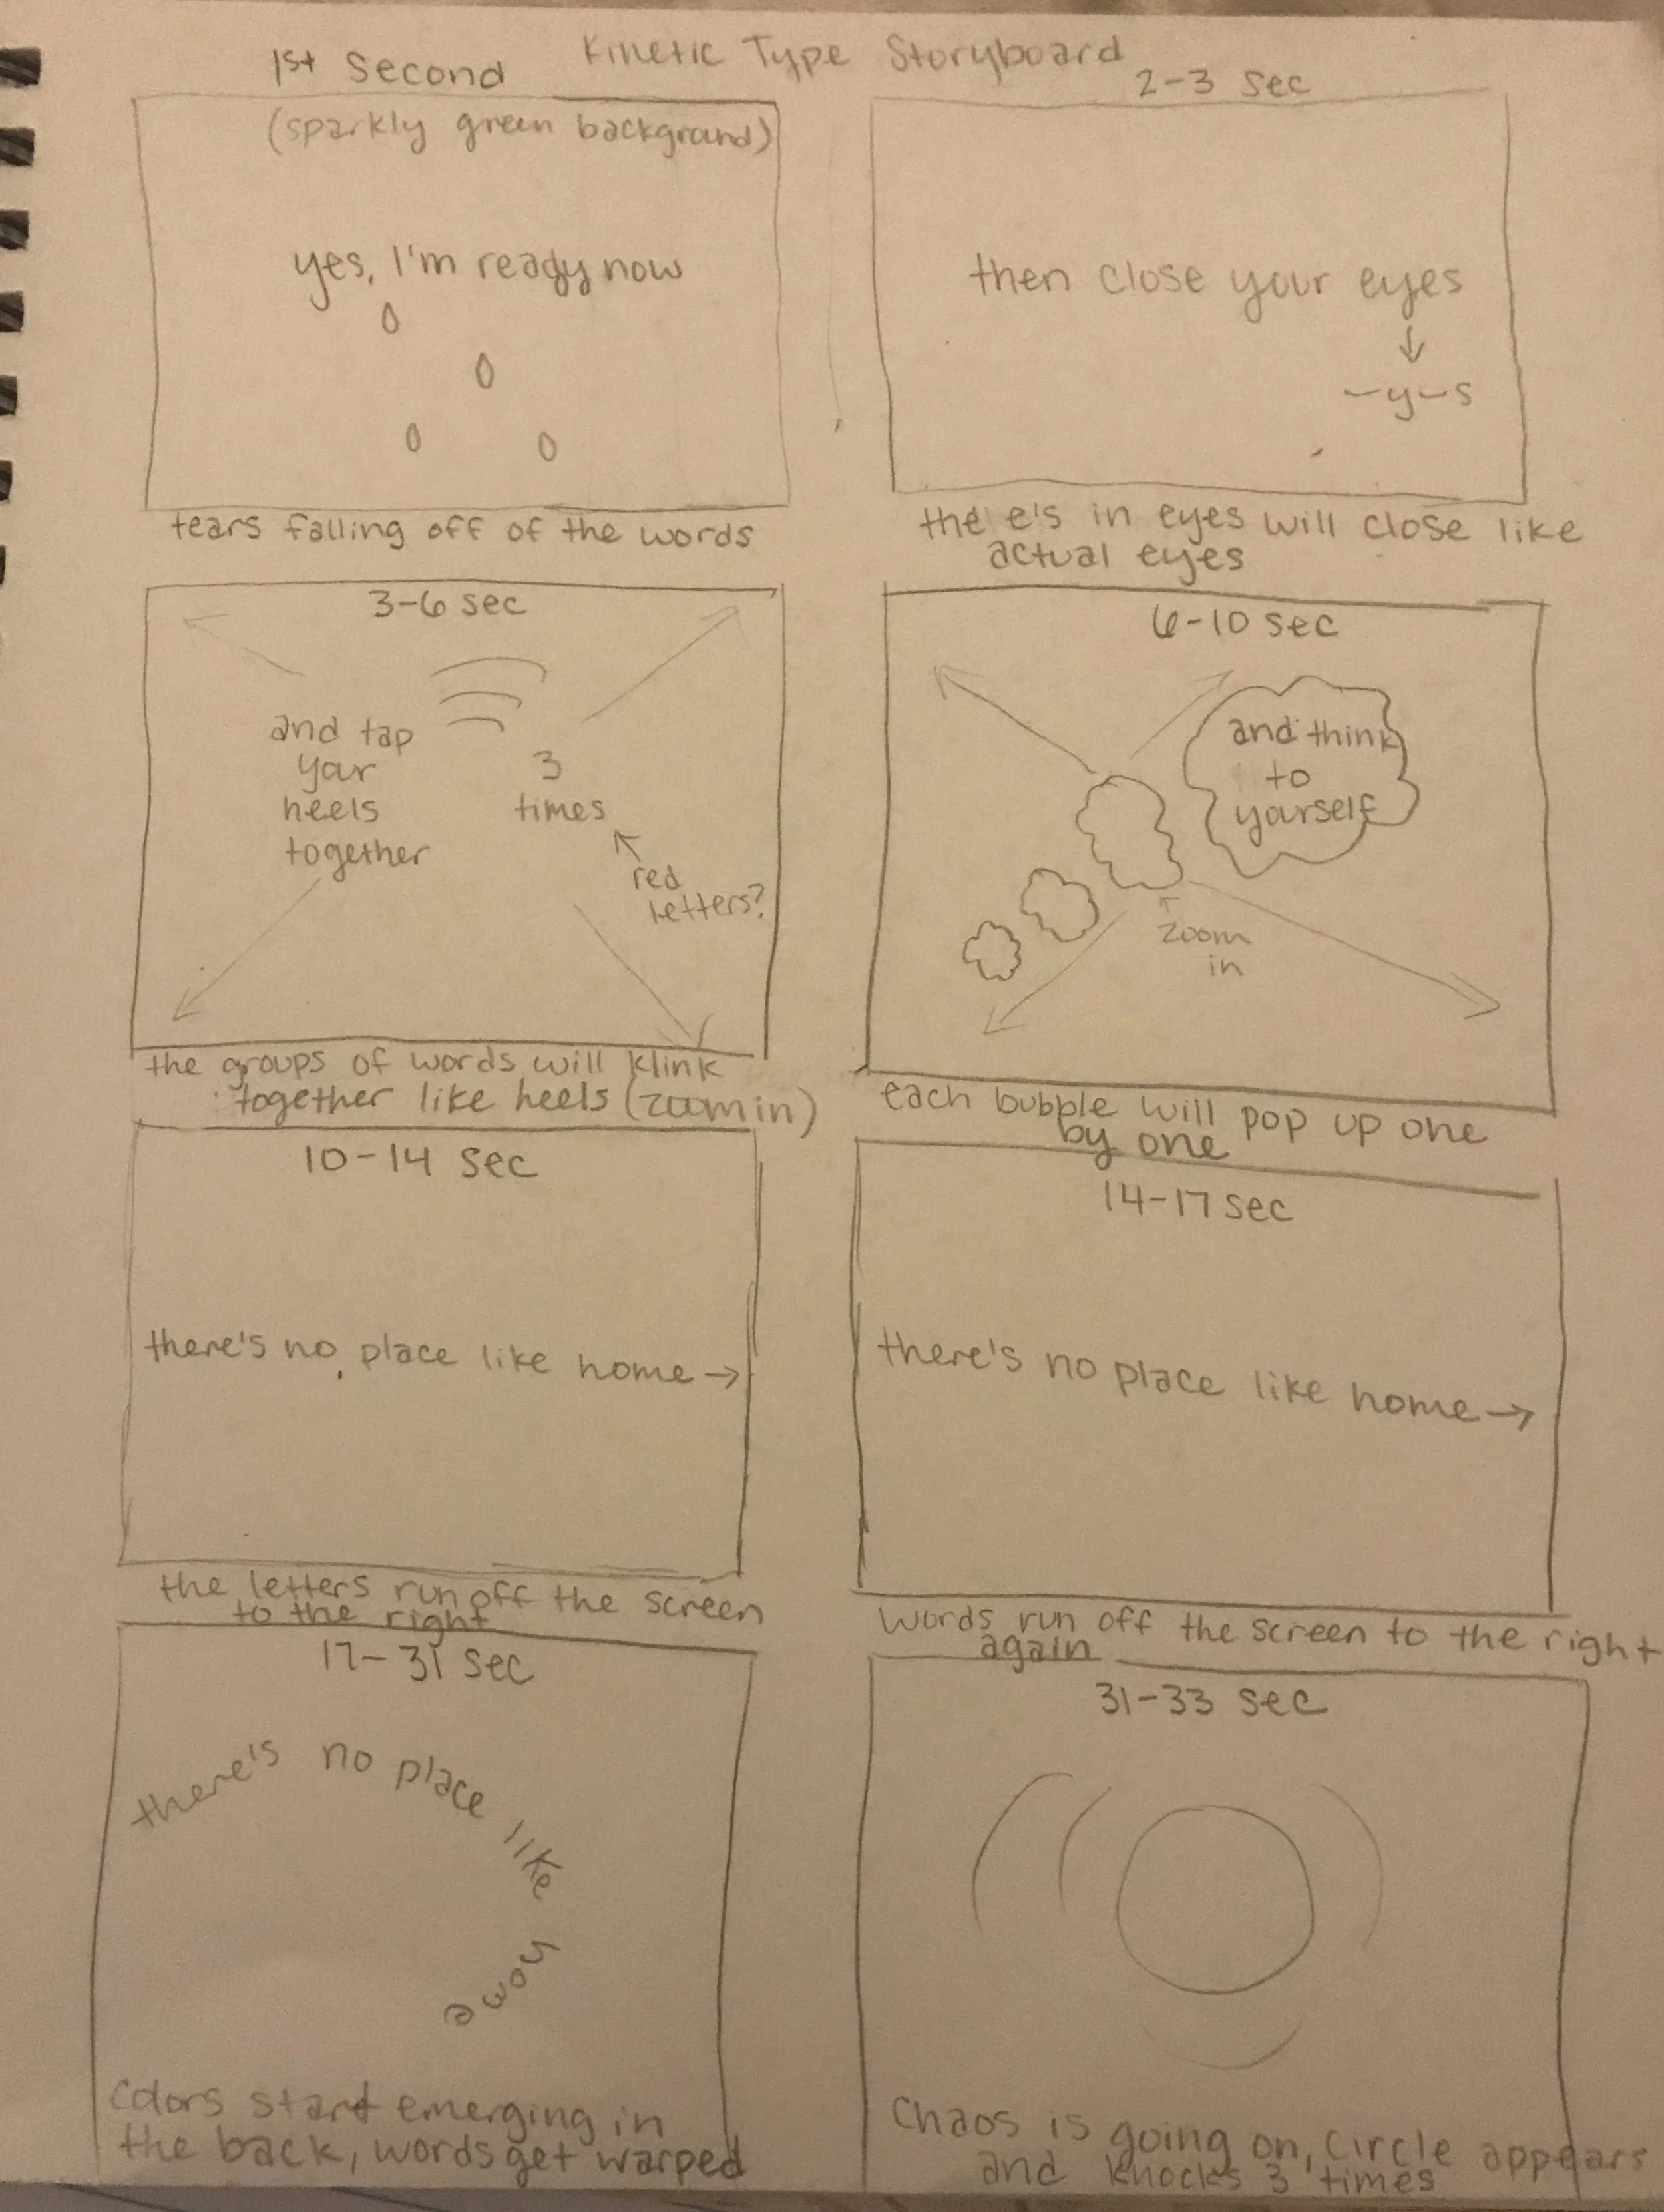 Kinetic Type Storyboard
1st Second
(sparkly green background)
yes, I'm ready now
tears falling off of the words
2-3 sec
then close your eyes
-y-s
the e's in eyes will close like
actual eyes
3-6 sec
and tap
your
heels
together
3
times
red
letters?
the groups of words will klink
together like heels (zoom in)
6-10 sec
and think
to
yourself
zoom
in
each bubble will pop up one
by one
10-14 sec
there's no place like home
the letters run off the screen
to the right
14-17 sec
there's no place like home
words run off the screen to the right
again
17-31 sec
there's no place like home
Colors start emerging in
the back, words get warped
31-33 sec
Chaos is going on, circle appears
and knocks 3 times